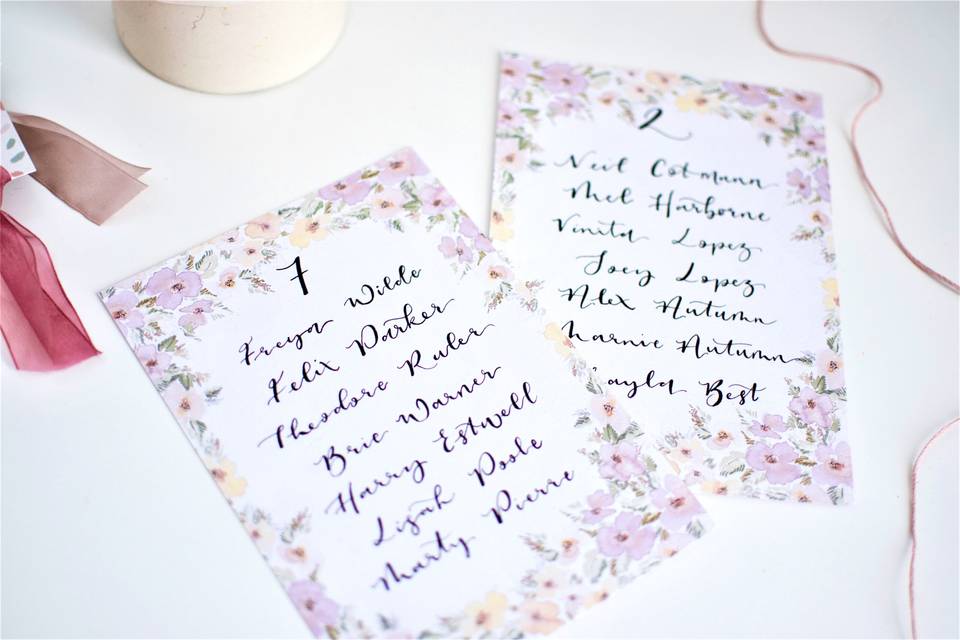 7
Freya Wilde
Felix Parker
Theodore Ruler
Brie Warner
Harry Estwell
Lizah Poole
Marty Pierre
2
Neil Cotmann
Mel Harborne
Vinita Lopez
Joey Lopez
Alex Autumn
Marnie Autumn
Best